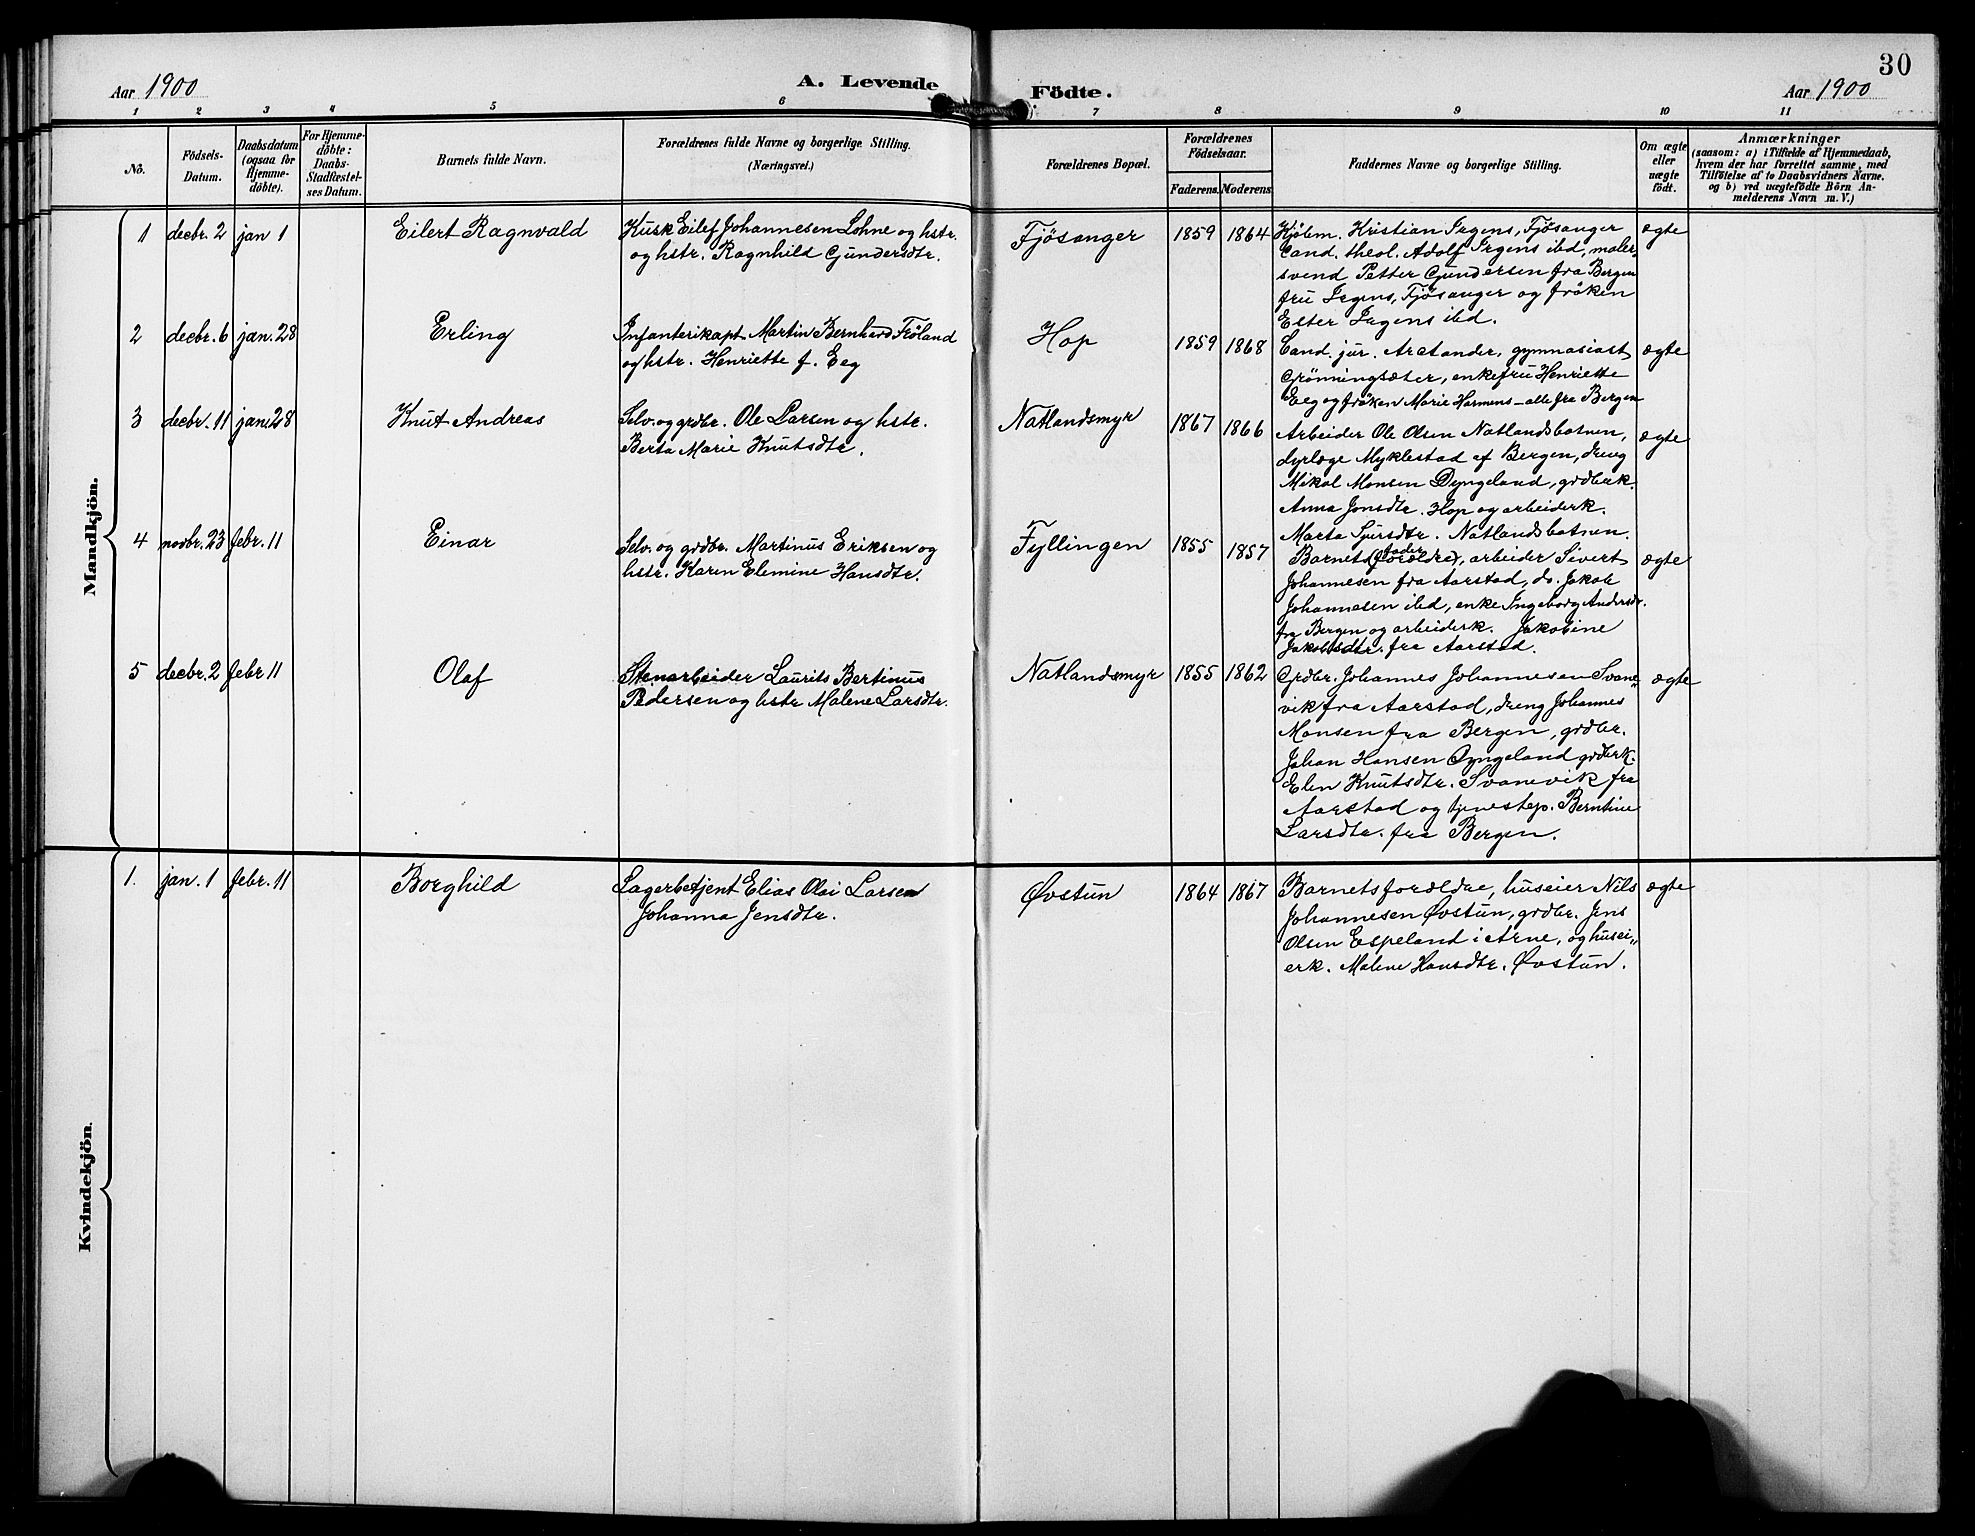 30
Aar 1900
A. Levende Födte.
Aar 1900
1 2 3 4 5 6 7 8 9 10 11
No.
Födsels-
Datum.
Daabsdatum
(ogsaa for
Hjemme-
döbte).
For Hjemme-
döbte:
Daabs-
Stadfæstel-
ses Datum.
Barnets fulde Navn.
Forældrenes fulde Navne og borgerlige Stilling.
(Næringsvei.)
Forældrenes Bopæl.
Forældrenes
Födselsaar.
Faderens. Moderens.
Faddernes Navne og borgerlige Stilling.
Om ægte
eller
uægte
födt.
Anmærkninger
(saasom: a) i Tilfælde af Hjemmedaab,
hvem der har forrettet samme, med
Tilföielse af to Daabsvidners Navne,
og b) ved uægtefödte Börn An-
melderens Navn m. V.)
Mandkjön.
1 decbr. 2 jan 1 Eilert Ragnvald
Kusk Eilef Johannesen Lohne og hstr.
og hstr. Ragnhild Gundersdtr.
Fjösanger 1859 1864
Kjöbm. Kristian Irgens, Fjösanger
Cand. theol. Adolf Irgens ibd, maler-
svend Petter Gundersen fra Bergen
fru Irgens, Fjösanger og fröken
Ester Irgens ibd.
ægte
2 decbr. 6 jan. 28 Erling
Infanterikapt. Martin Bernhard Fröland
og hstr. Henriette f. Eeg
Hop 1859 1868
Cand. jur. Arctander, gymnasiast
Grönningsæter, enkefru Henriette
Eeg og fröken Marie Harmens - alle fra Bergen
ægte
3 decbr. 11 jan 28 Knut Andreas
Selv. og grdbr. Ole Larsen og hstr.
Berta Marie Knutsdtr.
Natlandsmyr 1867 1866
Arbeider Ole Olsen Natlandsbotnen,
dyrlæge Myklestad af Bergen, dreng
Mikal Monsen Dyngeland, grdbrk.
Anna Jonsdtr. Hop og arbeiderk.
Marta Sjursdtr. Natlandsbotnen.
ægte
4 novbr. 23 febr. 11 Einar
Selv. og grdbr. Martinus Eriksen og
hstr. Karen Elemine Hansdtr.
Fyllingen 1855 1857
fader
Barnets (forældre), arbeider Sivert
Johannesen fra Aarstad, do. Jakob
Johannesen ibd, enke Ingeborg Andersdr.
fra Bergen og arbeiderk. Jakobine
Jakobsdtr. fra Aarstad.
ægte
5 decbr. 2 febr 11 Olaf
Stenarbeider Laurits Bertinus
Pedersen og hstr Malene Larsdtr.
Natlandsmyr 1855 1862
Grdbr. Johannes Johannesen Svane"
vik fra Aarstad, dreng Johannes
Monsen fra Bergen, grdbr.
Johan Hansen Dyngeland grdbrk.
Elen Knutsdtr. Svanevik fra
Aarstad og tjenestep. Berntine
Larsdtr. fra Bergen.
ægte
Kvindekjön.
1. jan. 1 febr. 11 Borghild
Lagerbetjent Elias Olai Larsen
Johanna Jensdtr.
Øvstun 1864 1867
Barnets forældre, huseier Nils
Johannesen Øvstun, grdbr. Jens
Olsen Espeland i Arne, og husei"
erk. Malene Hansdtr. Øvstun.
ægte